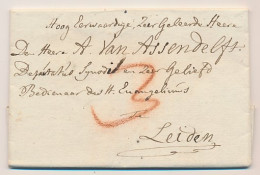 Hoog Eerwaardige Zeer Geleerde Heere
De Heere A. Van Assendelft
Deputatus Synodi en zeer Geliefd
Bedienaer des H. Euangeliums
3
te
Leiden